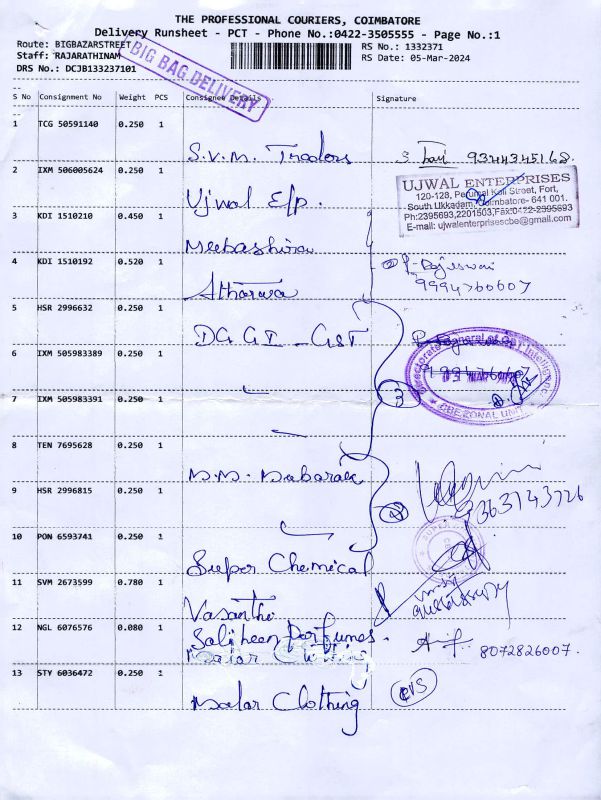 THE PROFESSIONAL COURIERS, COIMBATORE
Delivery Runsheet - PCT - Phone No.:0422-3505555 - Page No.:1
Route: BIGBAZARSTREET
RS No.: 1332371
Staff: RAJARATHINAM
RS Date: 05-Mar-2024
DRS No.: DCJB133237101
BIG BAG DELIVERY
S No Consignment No Weight PCS Consignee Details Signature
1 TCG 50591140 0.250 1
S.V.M. Traders 9344345168.
2 IXM 506005624 0.250 1
Ujwal E/p.
UJWAL ENTERPRISES
120-128, Perumal Koil Street, Fort,
South Ukkadam, Coimbatore- 641 001.
Ph:2395693,2201503,Fax:0422-2395693
E-mail: ujwalenterprisescbe@gmail.com
3 KDI 1510210 0.450 1
4 KDI 1510192 0.520 1
Atharava
9994760607
5 HSR 2996632 0.250 1
DG GI - GST
6 IXM 505983389 0.250 1
Directorate General of GST Intelligence
CBE ZONAL UNIT
7 IXM 505983391 0.250 1
3
8 TEN 7695628 0.250 1
M.M. Mubarak
9 HSR 2996815 0.250 1
9363143726
10 PON 6593741 0.250 1
Super Chemical
11 SVM 2673599 0.780 1
Vasantha
12 NGL 6076576 0.080 1
Saliheen Perfumes.
8072826007.
13 STY 6036472 0.250 1
Malar Clothing